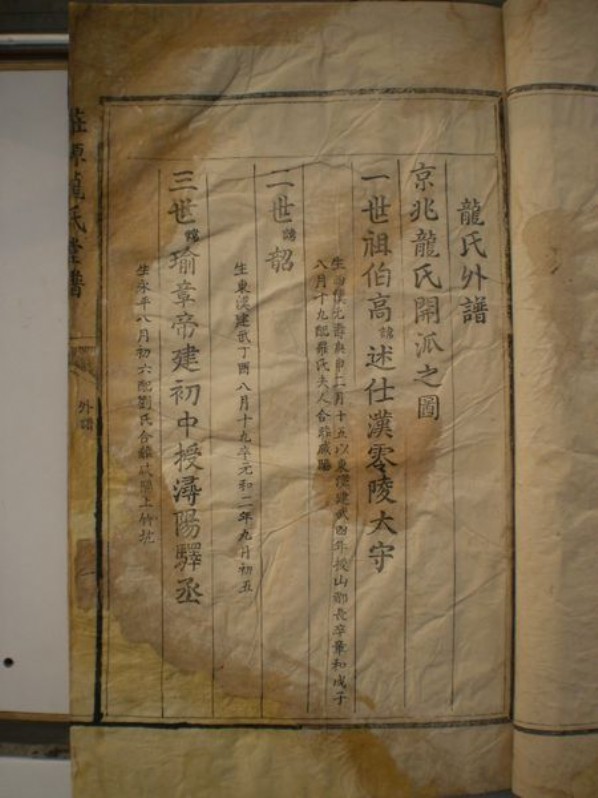 龍氏外譜
京兆龍氏開派之圖
一世祖伯高諱述仕漢零陵太守
生西漢元壽庚申二月十五以東漢建武四年授山都長卒章和戊子
八月十九配嚴氏夫人合葬咸陽
二世諱韜
生東漢建武丁酉八月十九卒元和二年九月初五
三世諱瑜章帝建初中授潯陽驛丞
生永平八月初六配劉氏合葬咸陽上竹坑
莊源龍氏全譜
外譜
一